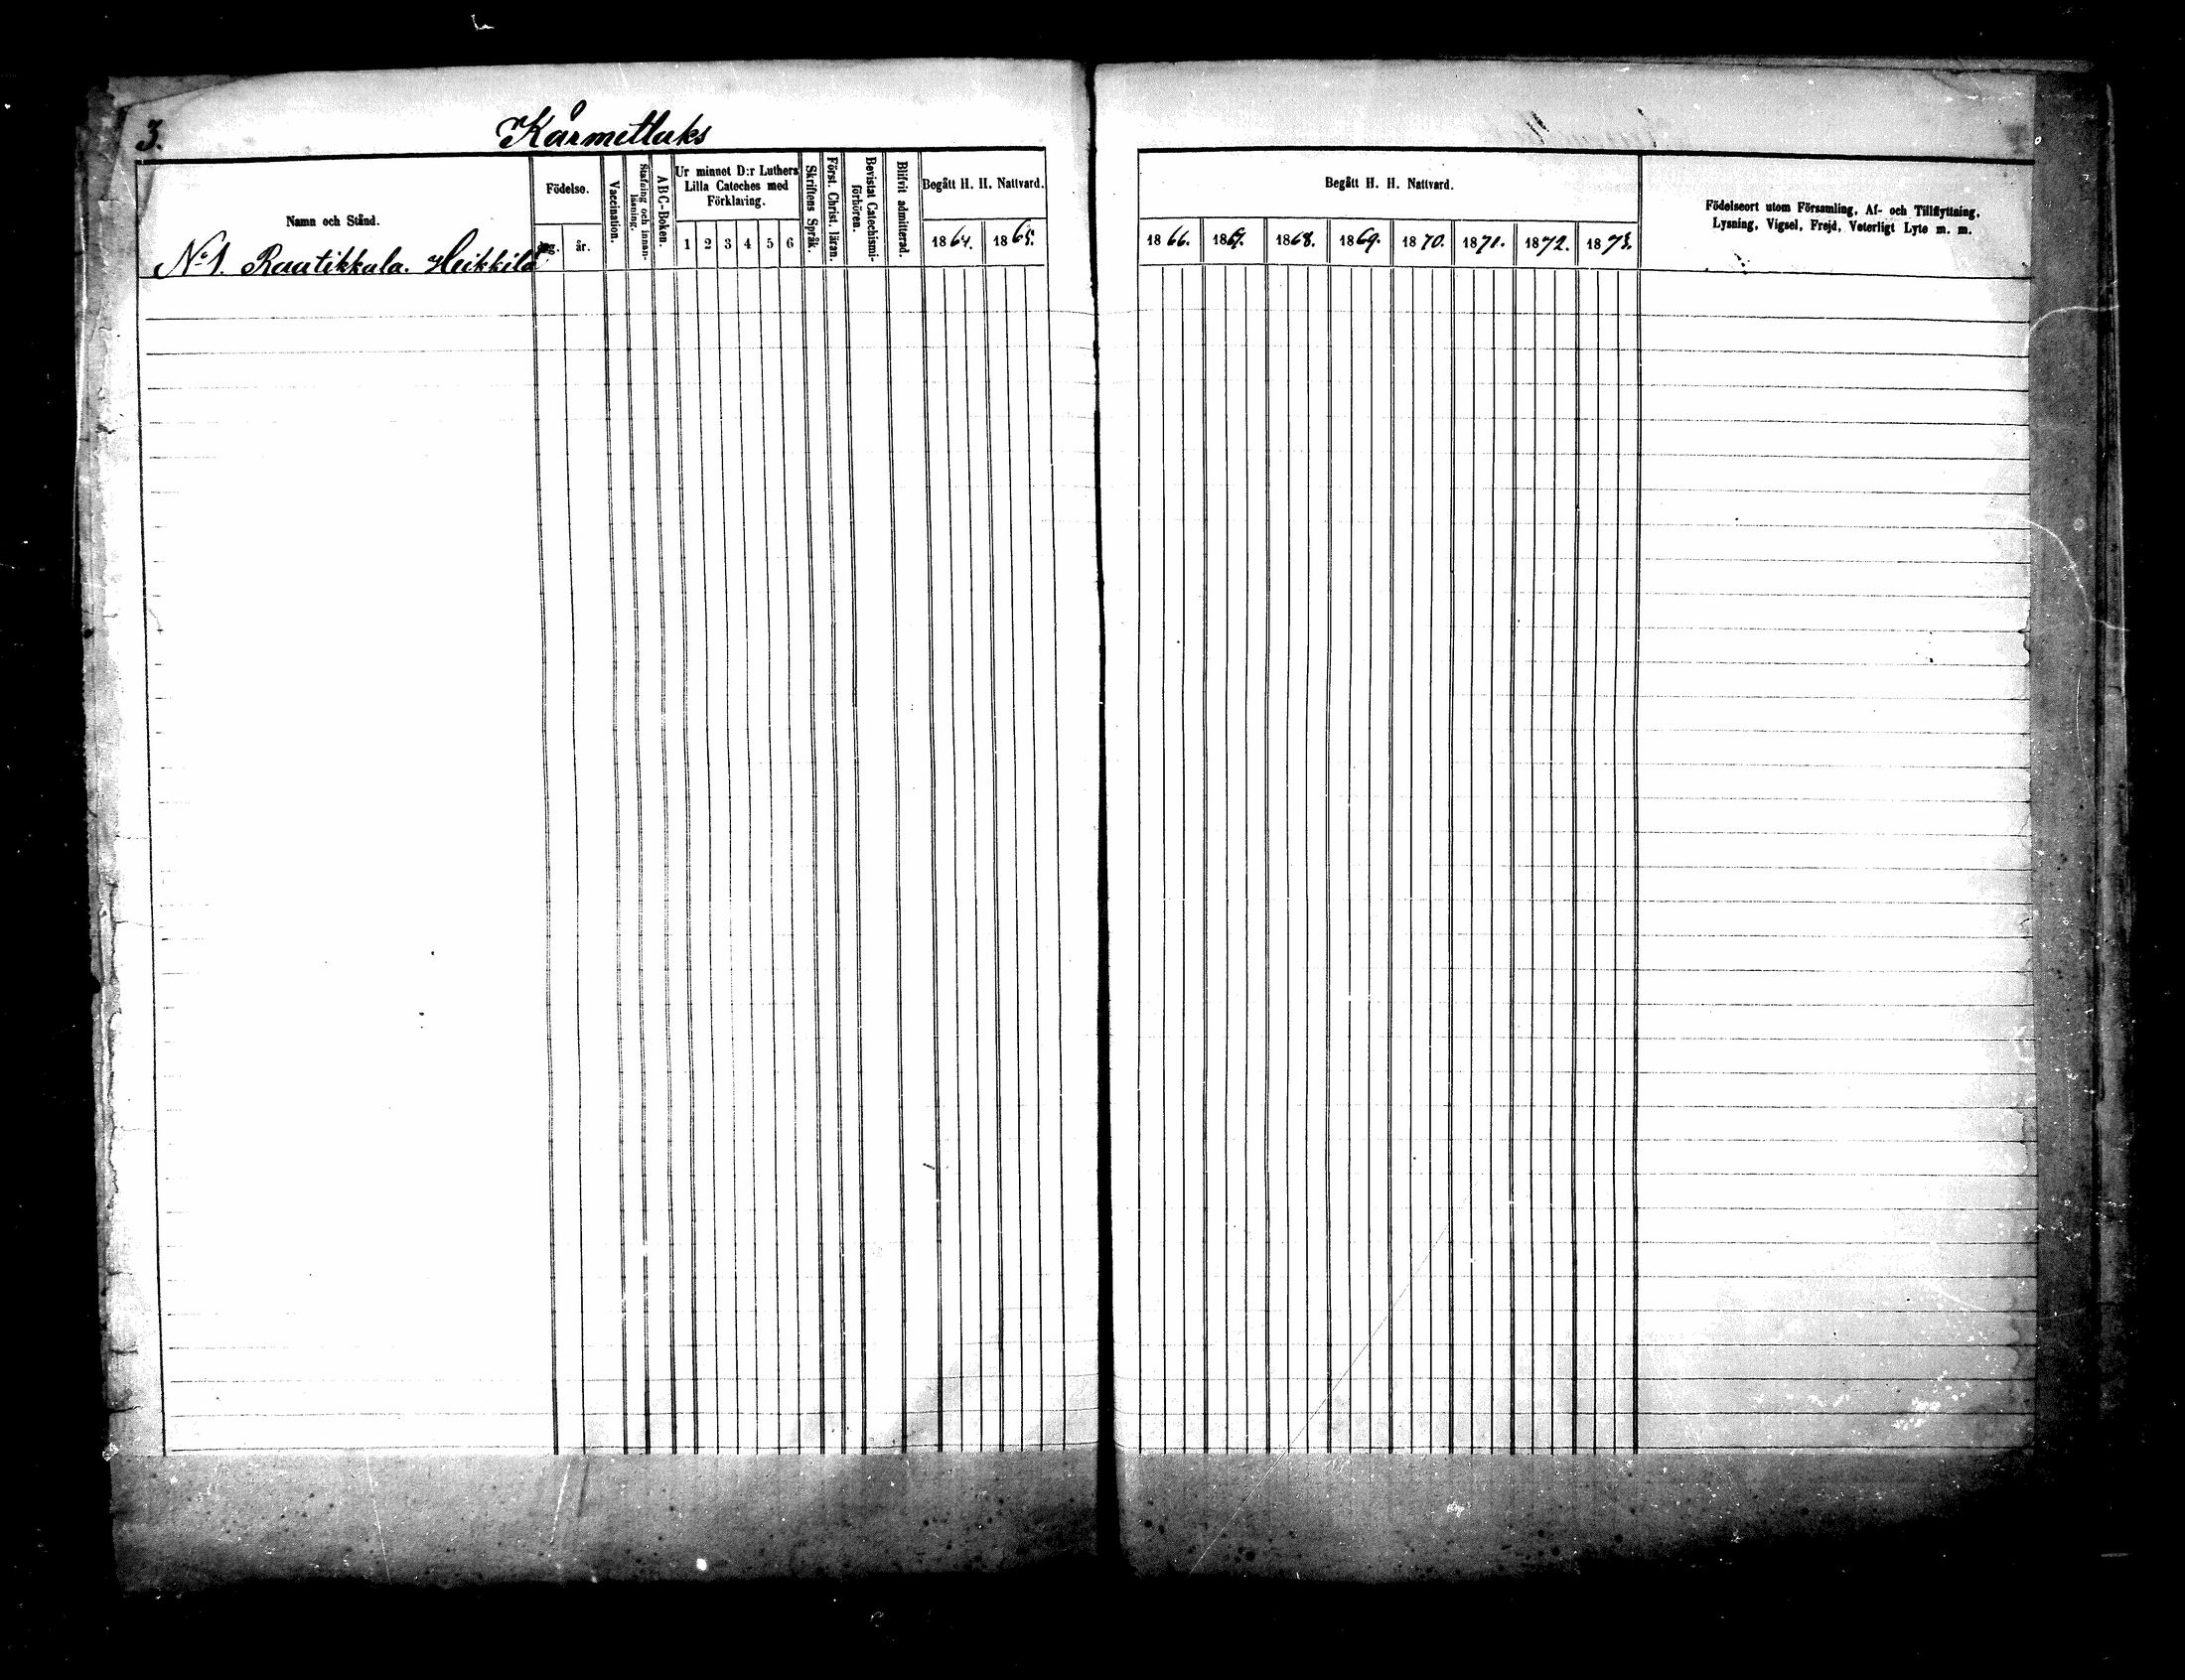 3. Kårmetlaks
Namn och Stånd.
Födelse.
dag.
år.
Vaccination.
Stafning och innanläsning.
A B C-Boken.
Ur minnet D:r Luthers
Lilla Cateches med
Förklaring.
1 2 3 4 5 6
Skriftens Språk.
Först. Christ. läran.
Bevistat Catechismi-
förhören.
Blifvit admitterad.
Begått H. H. Nattvard.
1864. 1865.
No 1. Rautikkala. Heikkilä
Begått H. H. Nattvard.
1866. 1867. 1868. 1869. 1870. 1871. 1872. 1873.
Födelseort utom Församling, Af- och Tillflyttning,
Lysning, Vigsel, Frejd, Veterligt Lyte m. m.